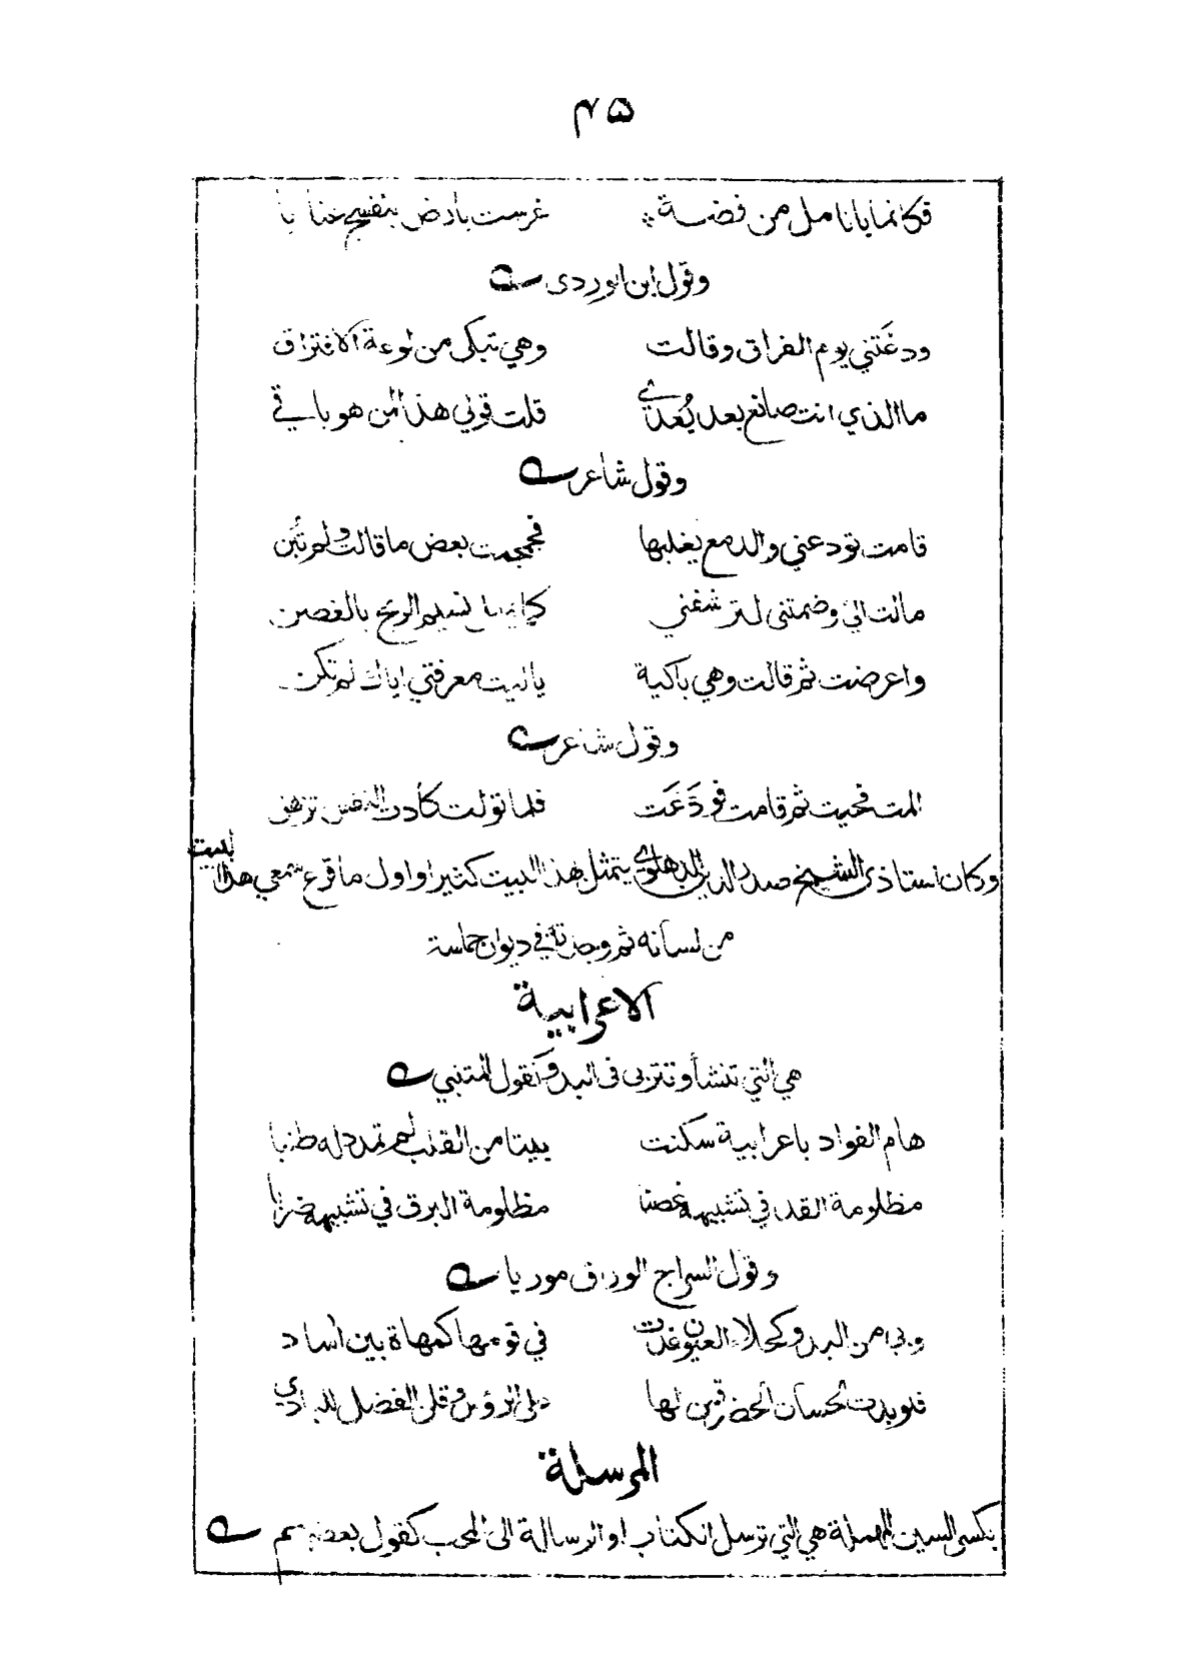 ۴۵
فكانما بانامل من فضة غرست بارض بنفسج عنابا
وقول ابن الوردى
ودعَتني يوم الفراق وقالت وهي تبكى من لوعة الافتراق
ما الذي انت صانع بعد بُعدي قلت قولي هذا لمن هو باقي
وقول شاعر
قامت تودعني والدمع يغلبها فجمجمت بعض ما قالت ولم تُبن
مالت اليّ وضمتنى لترشفني كما يميل نسيم الريح بالغصن
واعرضت ثم قالت وهي باكية ياليت معرفتي اياك لم تكن
وقول شاعر
المت فحيت ثم قامت فودَّعَت فلما تولت كادت النفس تزهق
وكان استاذى الشيخ صدر الدين الدهلوي يتمثل بهذا البيت كثيرا واول ما قرع سمعي هذا البيت
من لسانه ثم وجدته في ديوان حماسة
الاعرابية
هي التي تنشأ وتتربى فى البدو كقول المتنبي
هام الفواد باعرابية سكنت بيتا من القلب لم تمدد له طنبا
مظلومة القد في تشبيهه غصنا مظلومة البرق في تشبيهه ضربا
وقول السراج الوراق موريا
وبى من البدو كحلاء العيون غدت في قومها كمهاة بين آساد
فلو بدت لحسان الحضر قمن لها على الرؤس وقلن الفضل للبادي
المرسلة
بكسر السين المهملة هي التي ترسل الكتاب او الرسالة الى المحب كقول بعضهم